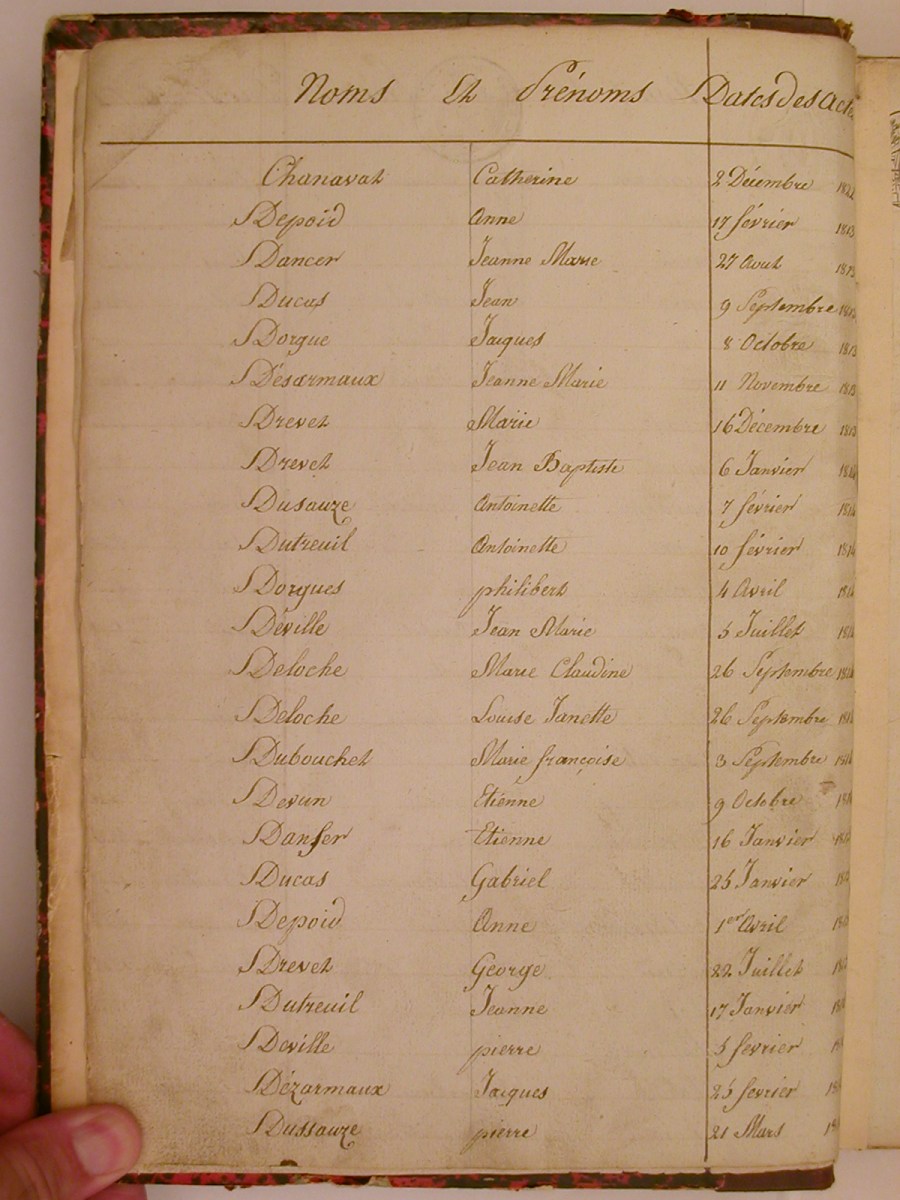 Noms Et Prénoms Dates des Actes
Chanavat Catherine 2 Décembre 1822
Depoid Anne 17 février 1813
Dancer Jeanne Marie 27 Aout 1813
Ducas Jean 9 Septembre 1813
Dorgue Jacques 8 Octobre 1813
Désarmaux Jeanne Marie 11 Novembre 1813
Drevet Marie 16 Décembre 1813
Drevet Jean Baptiste 6 Janvier 1814
Dusauze Antoinette 7 février 1814
Dutreuil Antoinette 10 février 1814
Dorgues philibert 4 Avril 1814
Déville Jean Marie 5 Juillet 1814
Deloche Marie Claudine 26 Septembre 1814
Deloche Louise Janette 26 Septembre
Dubouchet Marie françoise 3 Septembre
Devun Etienne 9 Octobre
Danser Etienne 16 Janvier
Ducas Gabriel 25 Janvier
Depoid Anne 1er Avril
Drevet George 22 Juillet
Dutreuil Jeanne 17 Janvier
Deville pierre 5 fevrier
Dézarmaux Jacques 25 fevrier
Dussauze pierre 21 Mars